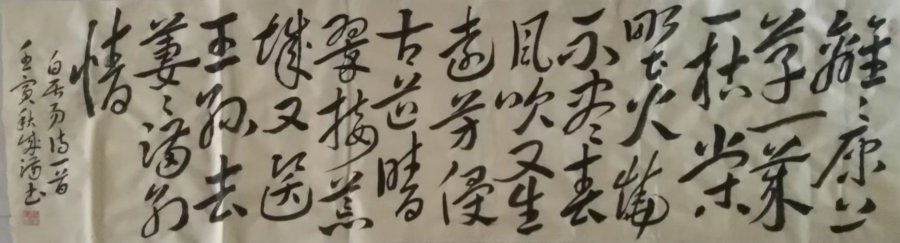 離〻原上
草一歲
一枯榮
野火燒
不盡春
風吹又生
遠芳侵
古道晴
翠接荒
城又送
王孫去
萋〻滿別
情
白居易詩一首
壬寅秋書